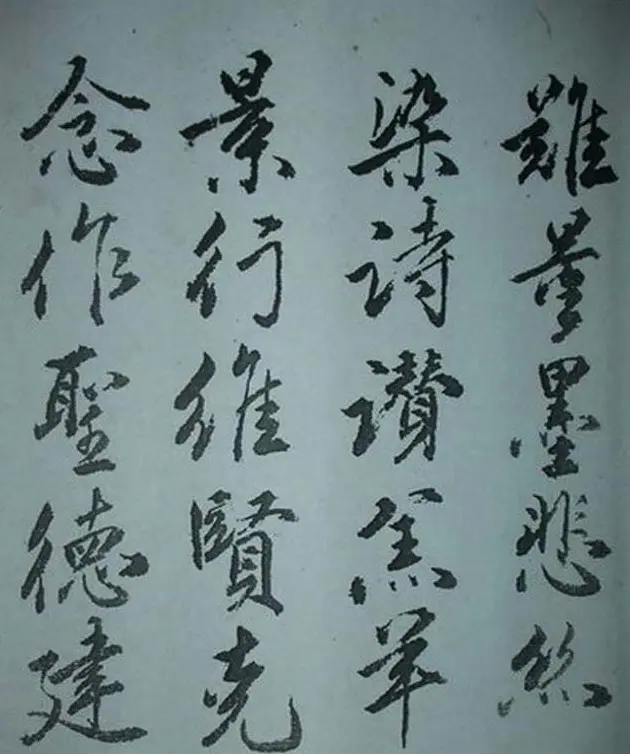 難量墨悲絲
染詩讚羔羊
景行維賢克
念作聖德建